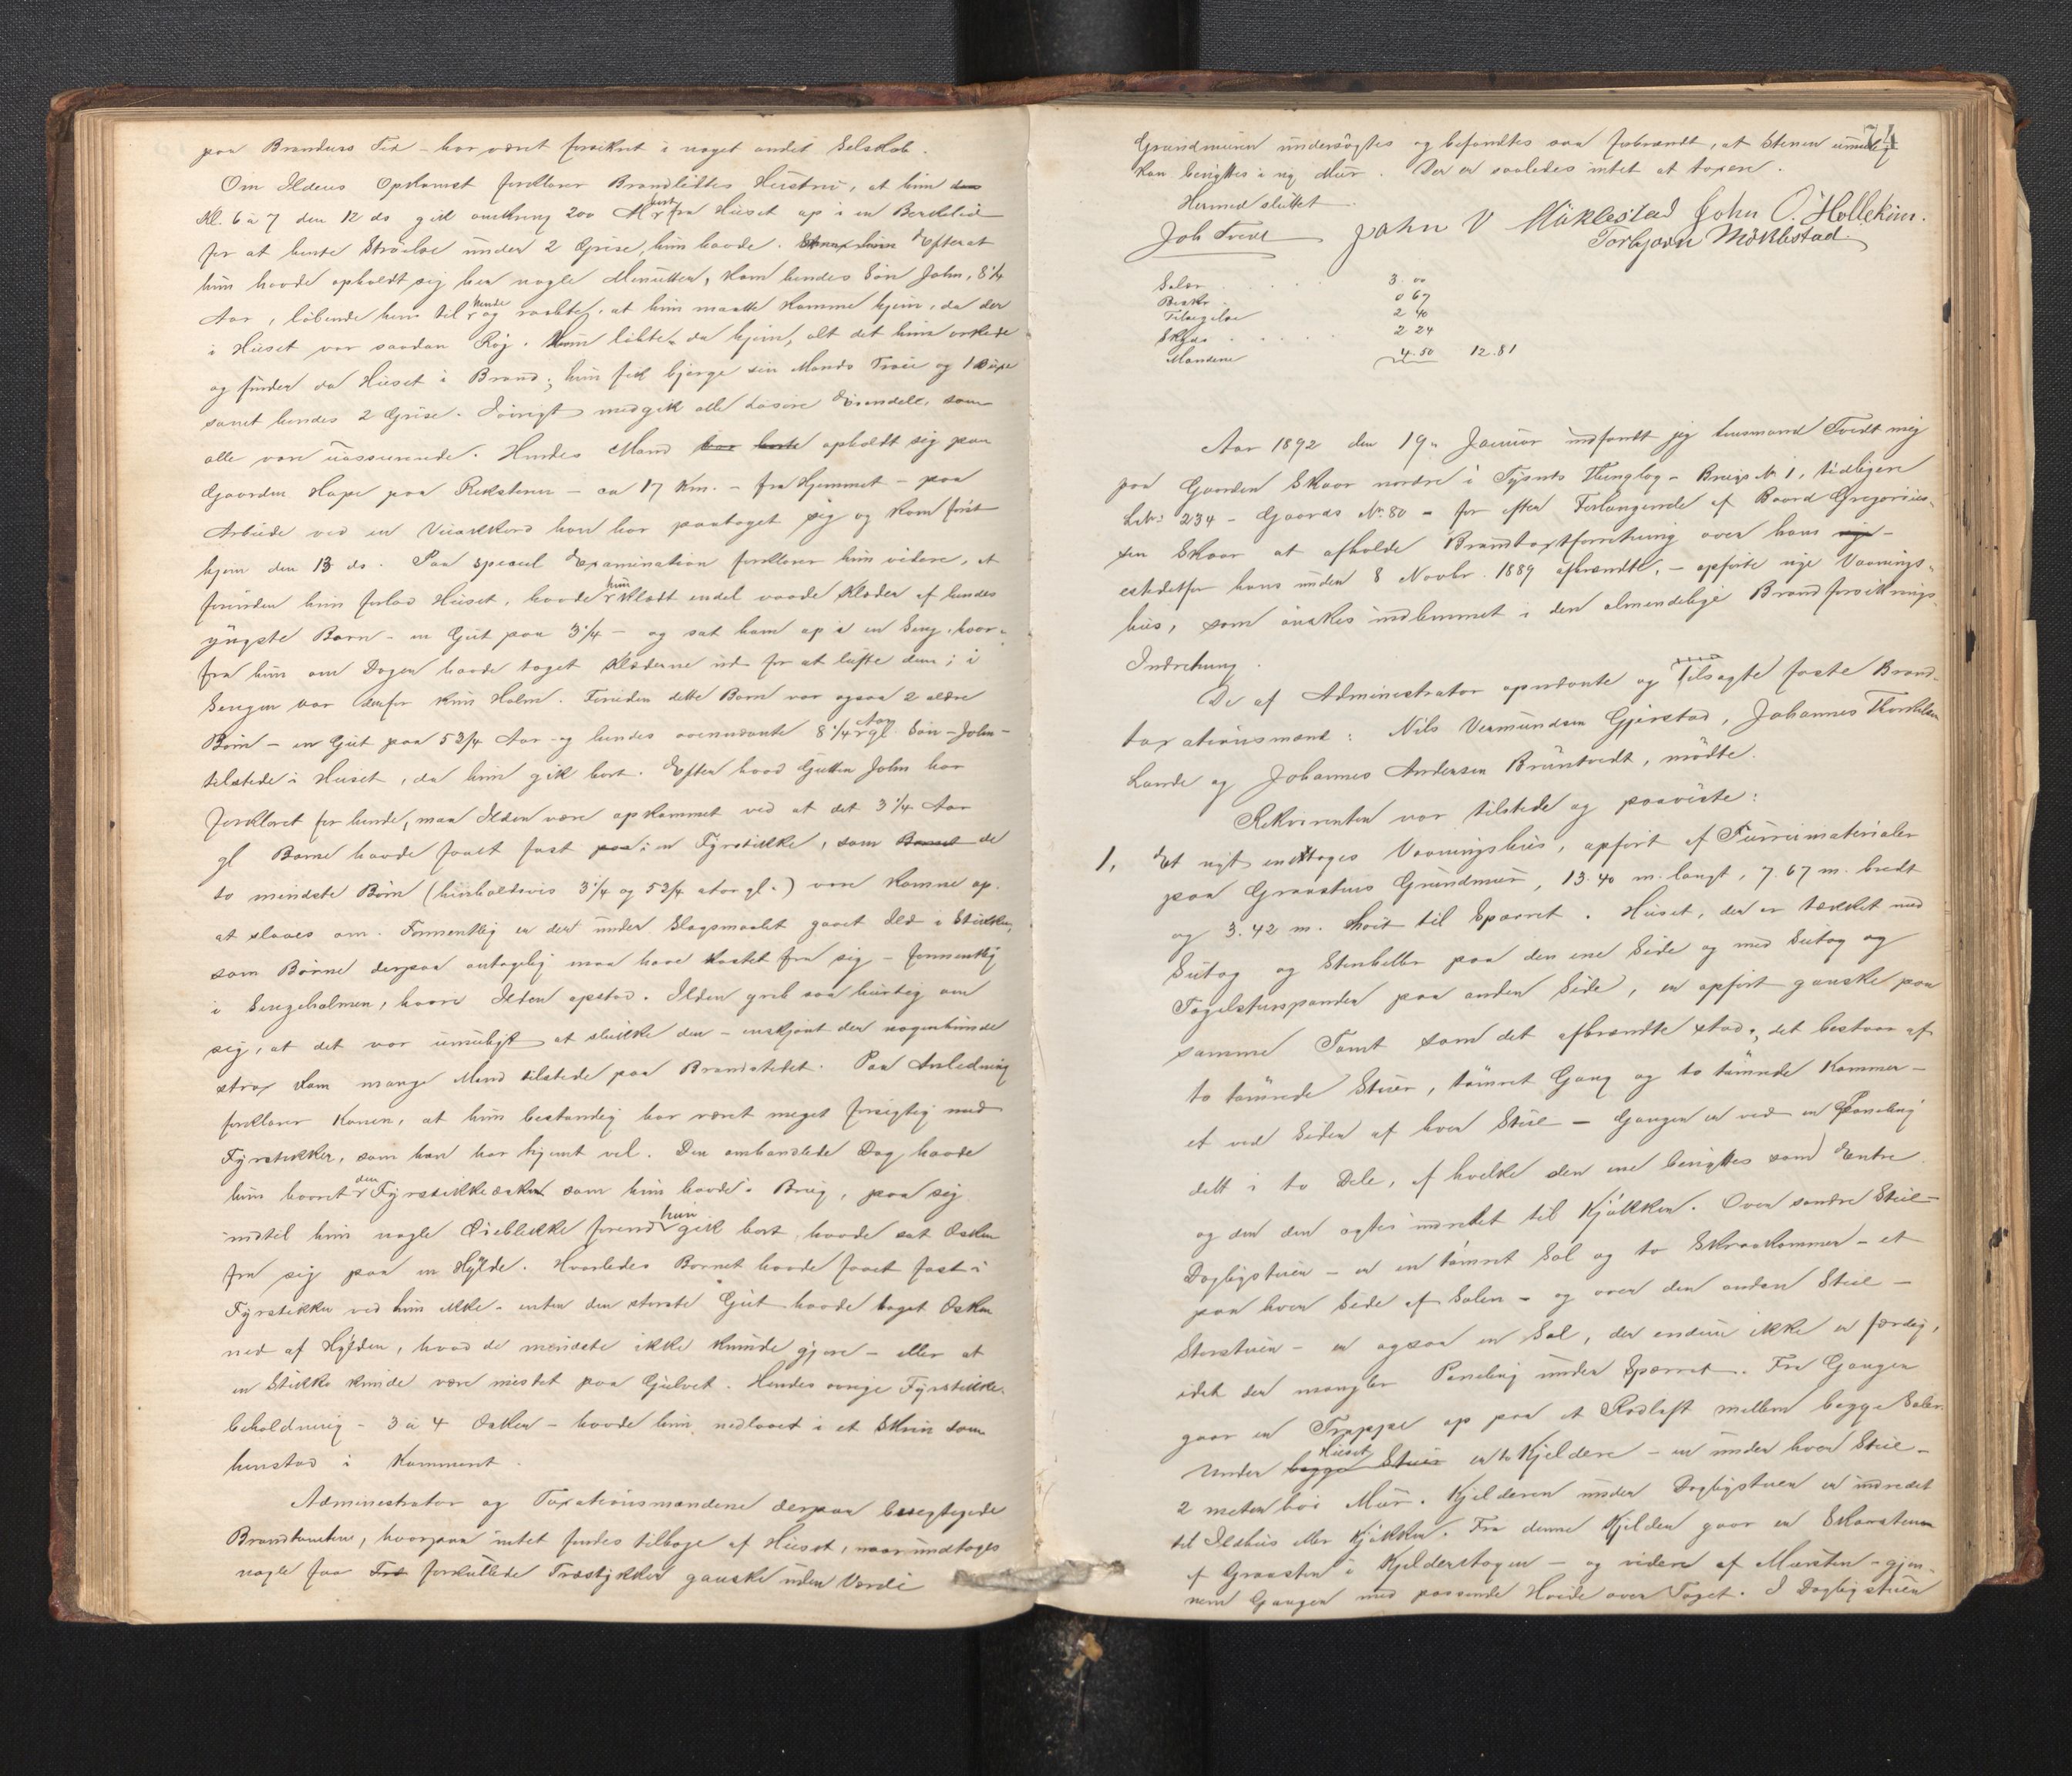 paa Brandens Tid - har været forsikret i noget andet Selskab.
Om Ildens Opkomst forklarer Brandlidtes Hustru, at hun den
Kl. 6 à 7 den 12 ds gik omkring 200 M bort fra Huset op i en Berckleid
for at hente Ströelse under 2 Grise, hun havde. Efterat
hun havde opholdt sig her nogle Minutter, kom hendes Sön John, 8 1/4
Aar, löbende hen til hende og raabte, at hun maatte komme hjem, da der
i Huset var saadan Røg. Hun löbte da hjem, alt det hun orkede
og finder da Huset i Brand; hun fik bjerge sin Mands Tröie og 1 Buxe
samt hendes 2 Grise. Forövrigt medgik alle Lösöre Eiendele, som
alle vare uassurerede. Hendes Mand var borte opholdt sig paa
Gaarden Hope paa Reksteren - ca 17 Km. - fra Hjemmet - paa
Arbeide ved en Veiakkord han har paataget sig og kom först
hjem den 13 ds. Paa speciel Examination forklarer hun videre, at
forinden hun forlod Huset, havde hun klædt endel vaade Klæder af hendes
yngste Barn - en Gut paa 3 1/4 - og sat ham op i en Seng, hvor-
fra hun om Dagen havde taget Klæderne ud for at lufte dem; i
Sengen var derfor kun Halm. Foruden dette Barn var ogsaa 2 ældre
Börn - en Gut paa 5 3/4 Aar - og hendes ovennævnte 8 1/4 Aar gl. Sön - John -
tilstede i Huset, da hun gik bort. Efter hvad Gutten John har
forklaret for hende, maa Ilden være opkommet ved at det 3 1/4 Aar
gl Barn havde faaet fast paa i en Fyrstikke, som Barnet de
to mindste Börn (henholdsvis 3 1/4 og 5 3/4 aar gl.) vare komne op
at slaaes om. Formentlig er der under Slagsmaalet gaaet Ild i Stikken,
som Börne derpaa antagelig maa have kastet fra sig - formentlig
i Sengehalmen, hvori Ilden opstod. Ilden greb saa hurtig om
sig, at det var umuligt at slukke den - enskjönt der nogenlunde
strax kom mange Mand tilstede paa Brandstedet. Paa Anledning
forklarer Konen, at hun bestandig har været meget forsigtig med
Fyrstikker, som hun har gjemt vel. Den omhandlede Dag havde
hun baaret den Fyrstikkeæsken som hun havde i Brug, paa sig
indtil hun nogle Øieblikke forend hun gik bort, havde sat Æsken
fra sig paa en Hylde. Hvorledes Barnet havde faaet fast i
Fyrstikken ved hun ikke - enten den störste Gut havde taget Æsken
ned af Hylden, hvad de mindste ikke kunde gjøre - eller at
en Stikke kunde være mistet paa Gulvet. Hendes övrige Fyrstikke-
beholdning - 3 à 4 Æsker - havde hun nedlaaset i et Skrin som
henstod i Kammeret.
Administrator og Taxationsmændene derpaa besigtigede
Brandtomten, hvorpaa intet fandtes tilbage af Huset, naar undtages
nogle faa Træ forkullede Træstykker ganske uden Værdi
74
Grundmuren undersögtes og befandtes saa forbrændt, at Stenen umulig
kan benyttes i ny Mur. Der er saaledes intet at taxere.
Hermed sluttet.
Joh Tvedt John V Möklestad John O. Hollekim.
Torbjørn Möklestad.
Salær . . . 3.00
Beskr. 0 67
Tilsigelse 2 40
Skyds . . . 2 24
Mændene 4.50 12.81
Aar 1892 den 19. Januar indfandt jeg Lensmand Tvedt mig
paa Gaarden Skaar nordre i Tysnes Thinglag - Brugs No 1, tidligere
Löb: 234 - Gaards No. 80 - for efter Forlangende af Baard Gregorius-
sen Skaar at afholde Brandtaxtforretning over hans nye -
istedetfor hans under 8 Novbr. 1889 afbrændte, - opförte nye Vaanings-
hus, som önskes indlemmet i den almindelige Brandforsikrings-
Indretning.
De af Administrator opnævnte og tilsagte faste Brand-
taxationsmænd: Nils Vermundsen Gjerstad, Johannes Thorkelsen
Lande og Johannes Andersen Bruntvedt, mödte.
Rekvirenten var tilstede og paaviste:
1. Et nyt enetages Vaaningshus, opfört af Furumaterialer
paa Graastens Grundmur, 13.40 m. langt, 7.67 m. bredt
og 3.42 m. höit til Sparret. Huset, der er tækket med
Sutag og Stenheller paa den ene Side og med Sutag og
Tagelstenspander paa anden Side, er opfört ganske paa
samme Tomt som det afbrændte stod; det bestaar af
to tömrede Stuer, tömret Gang og to tömrede Kammer -
et ved Siden af hver Stue - Gangen er ved en Paneling
delt i to Dele, af hvilke den ene benyttes som Entre
og den den agtes indredet til Kjökken. Over söndre Stue -
Dagligstuen - er en tömret Sal og to Skraakammer - et
paa hver Side af Salen - og over den anden Stue -
Storstuen - er ogsaa en Sal, der endnu ikke er færdig,
idet der mangler Paneling under Sparret. Fra Gangen
gaar en Trappe op paa et Rodloft mellem begge Saler.
Under begge Stuer Huset er to Kjeldere - en under hver Stue -
2 meter höi Mur. Kjelderen under Dagligstuen er indredet
til Ildhus eller Kjökken. Fra denne Kjelder gaar en Skorsten
af Graasten i Kjelderetagen - og videre af Mursten - gjen-
nem Gangen med passende Höide over Taget. I Dagligstuen